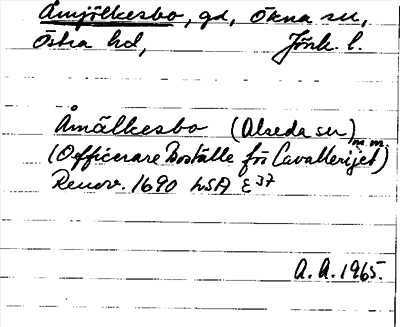 Åmjölkesbo, gd, Ökna sn,
Östra hd, Jönk. l.
Åmälkesbo (Alseda sn)
m.m.
(Officerare Boställe för Cavalleriet)
Renov. 1690 LSA E 37
A. A. 1965.